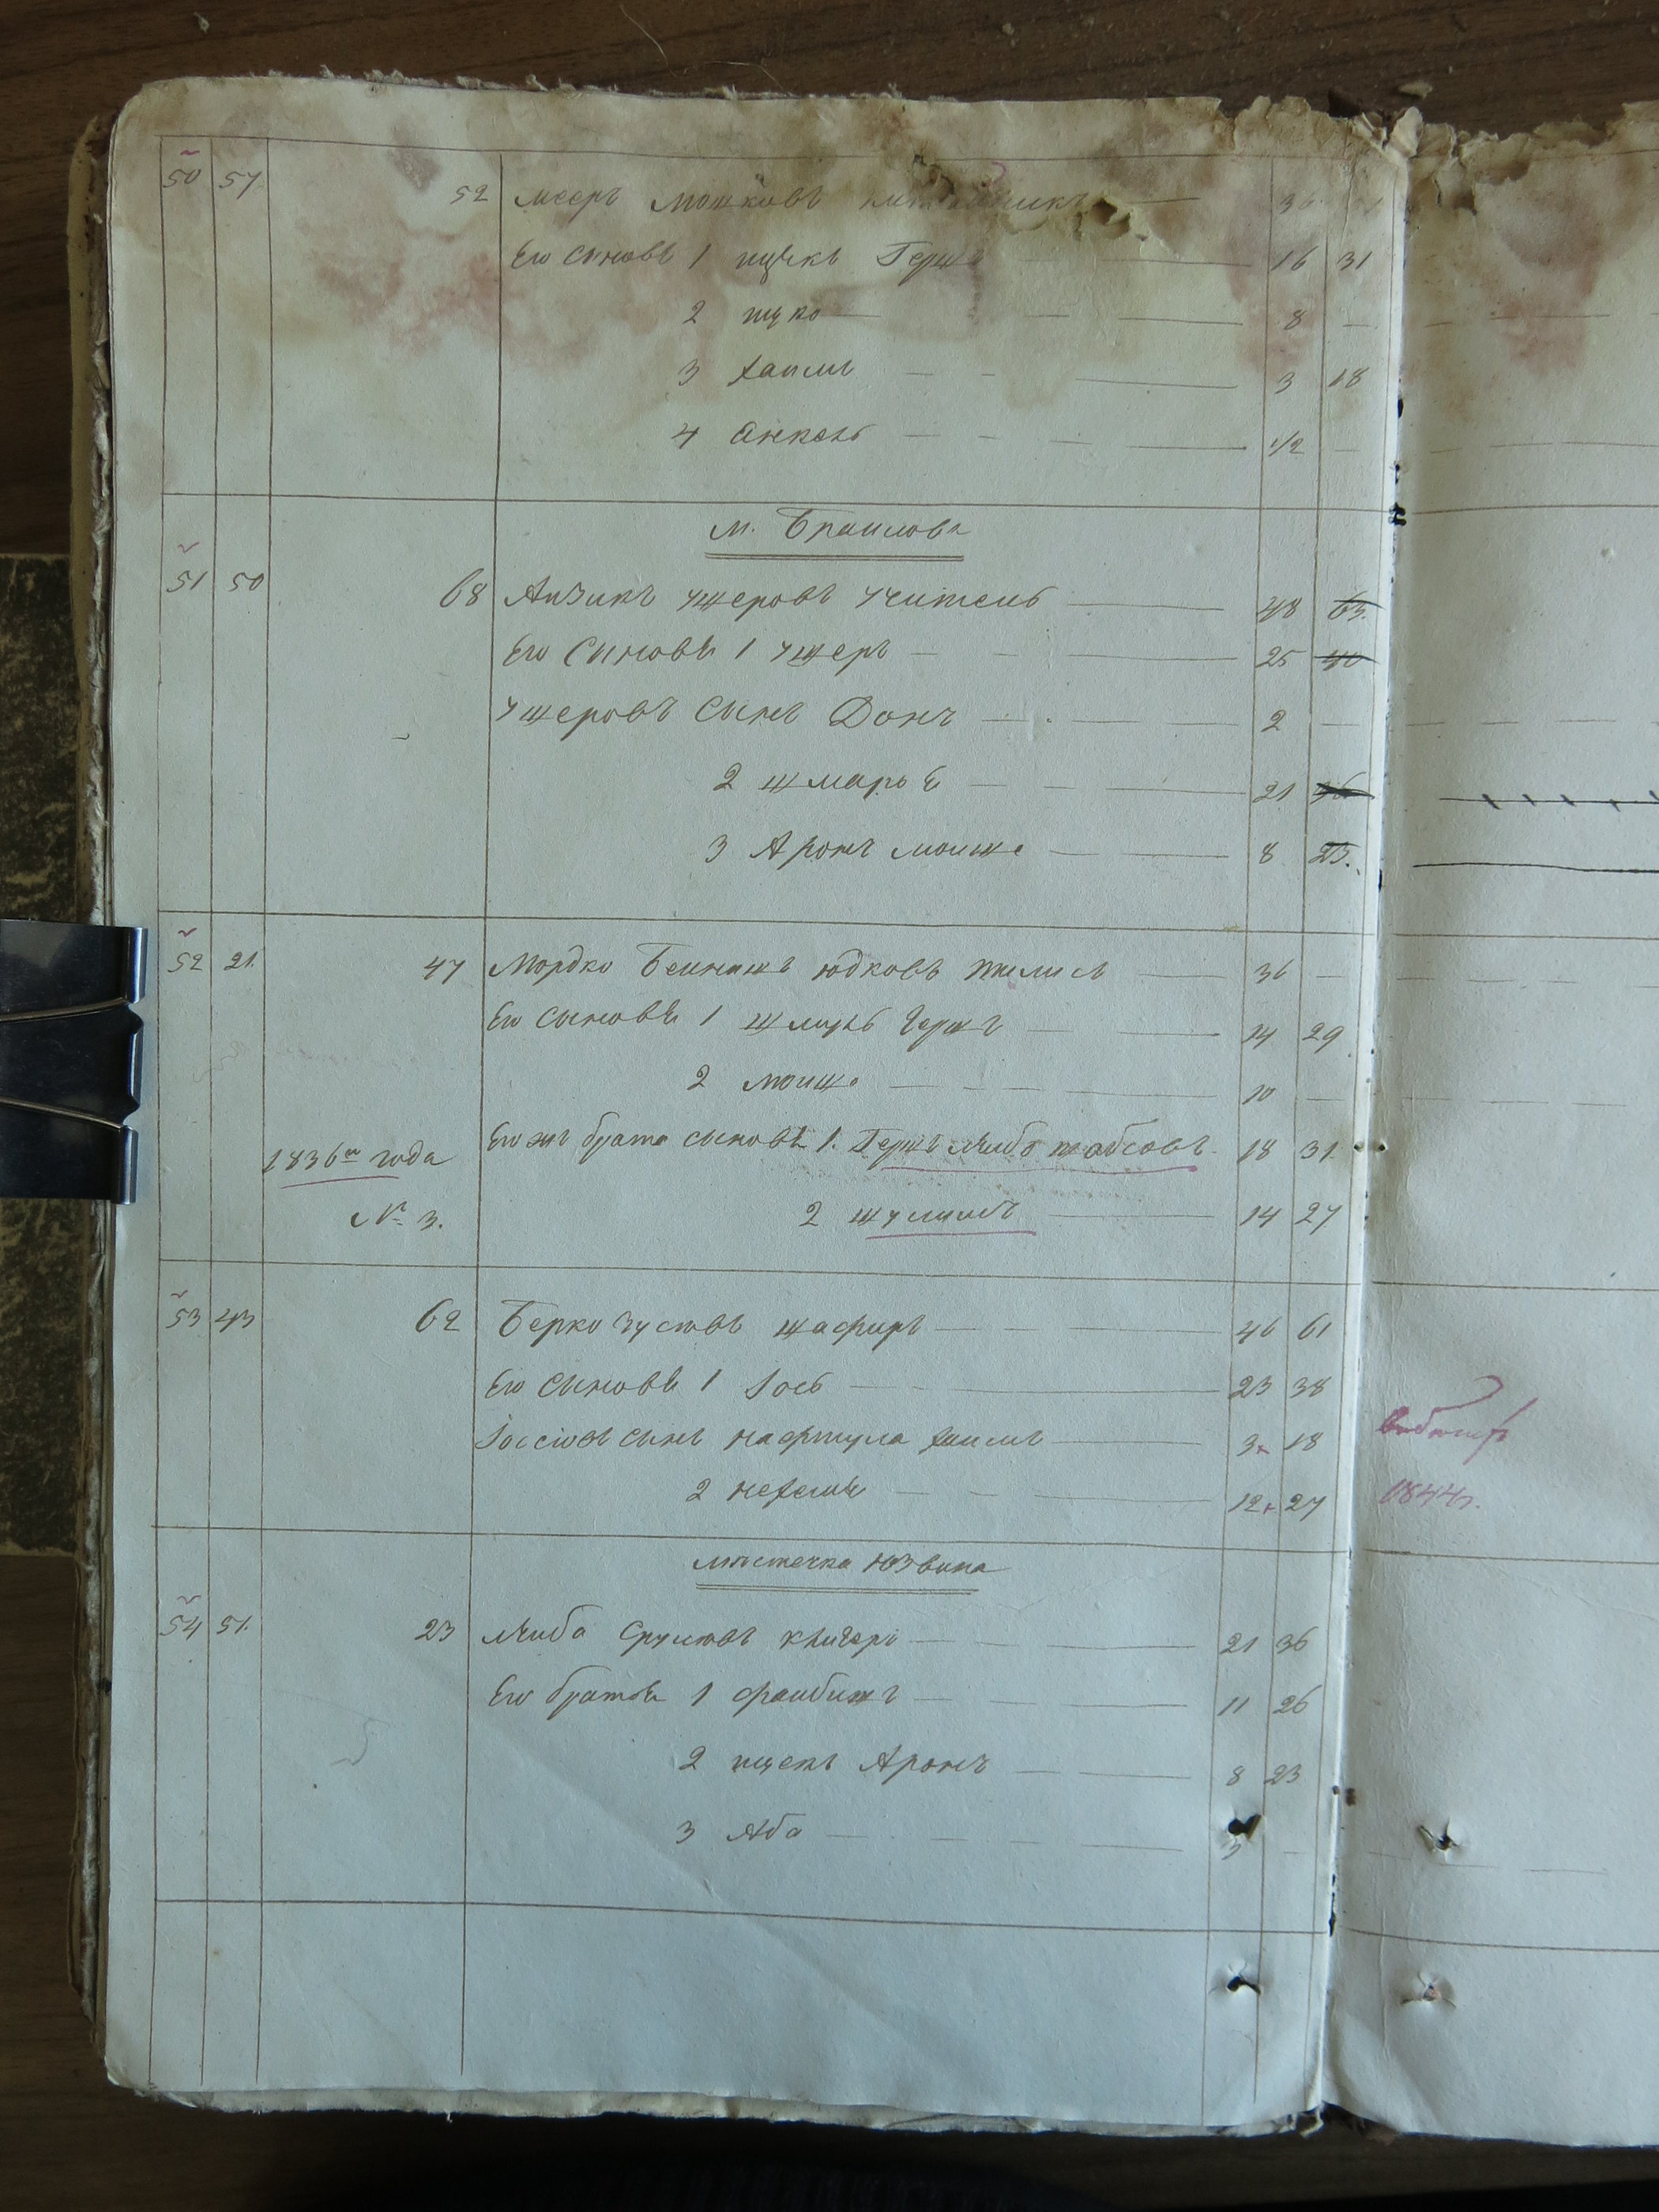 50 57 52 Мееръ Мошковъ 36
Его сыновья 1 ицикъ Герш 16 31
2 ицко — 8 —
3 хаимъ — 3 18
4 Анкель — 1/2 —
м. Браилова
51 50 68 Аизикъ ушеровъ учитель — 48 63.
Его Сыновья 1 ушеръ — 25 40
ушеровъ сынъ Донъ — 2 —
2 шмарье — 21 36
3 Аронъ моише — 8 23.
52 21. 47 Мордко Беинишъ юдковъ — 36 —
Его сыновья 1 Гершъ — 14 29
2 моише — 10 —
1836го года Его жъ брата сыновья 1. Гершъ Лиибъ 18 31.
№ 3. 2 шулимъ — 14 27
53 43 62 Берко зусевъ шафиръ — 46 61
Его сыновья 1 Iось — 23 38
Iосiовъ сынъ нафтула хаимъ — 3 18
2 нехемье — 12 27
1844г.
местечка Юзвина
54 51. 23 Либа Срулювъ — 21 36
Его братья 1 фаибишъ — 11 26
2 ицекъ Аронъ — 8 23
3 Аба — 3 —